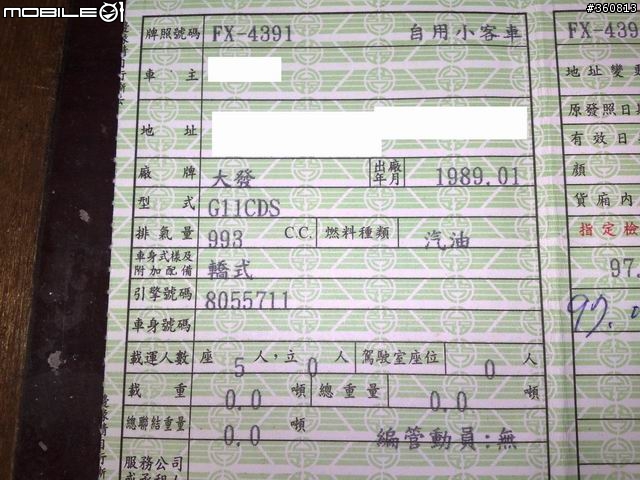 MOBILE01
#360813
牌照號碼 FX-4391 自用小客車
車主
地址
廠牌 大發 出廠年月 1989.01
型式 G11CDS
排氣量 993 C.C. 燃料種類 汽油
車身式樣及附加配備 轎式
引擎號碼 8055711
車身號碼
載運人數 座 5 人,立 0 人 駕駛室座位 0 人
載重 0.0 噸 總重量 0.0
總聯結重量 0.0 噸 編管動員:無
服務公司
FX-439
地址變
原發照日
有效日
顏
貨廂內
指定檢
97.
97.0